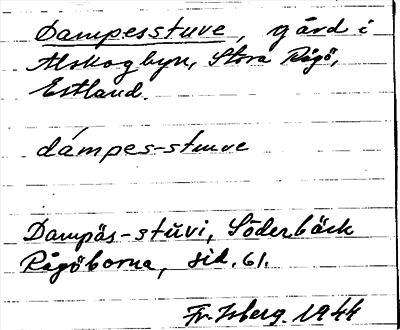 Dampesstuve, gård i
Alskogbyn, Stora Rågö,
Estland.
dámpes-stuve
Dampäs-stŭvi, Söderbäck
Rågöborna, sid. 61.
Fr. Isberg. 1944